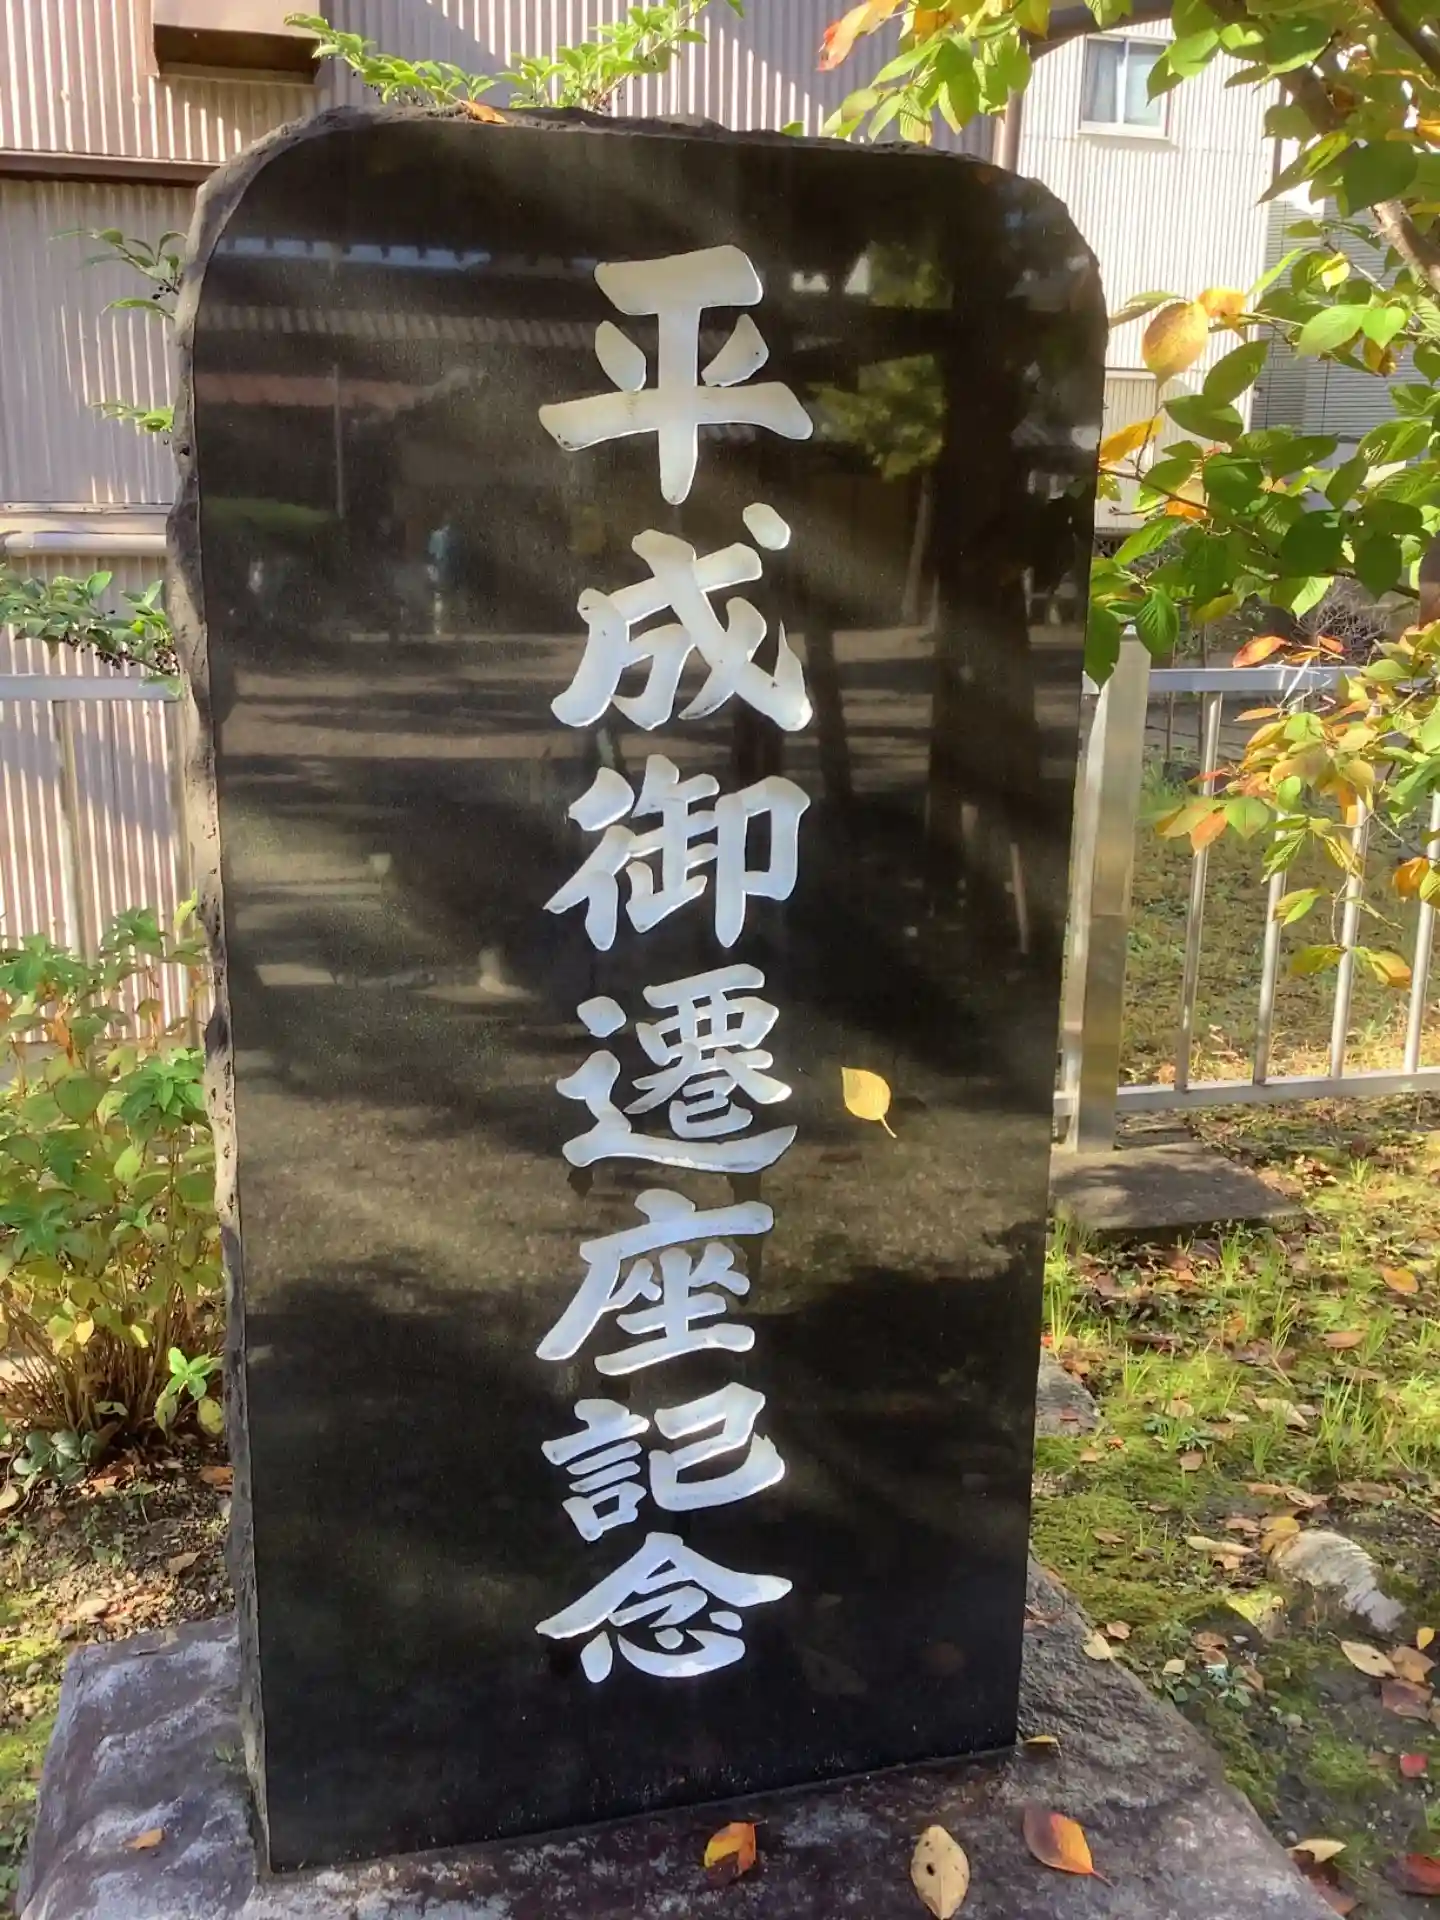 平成御遷座記念